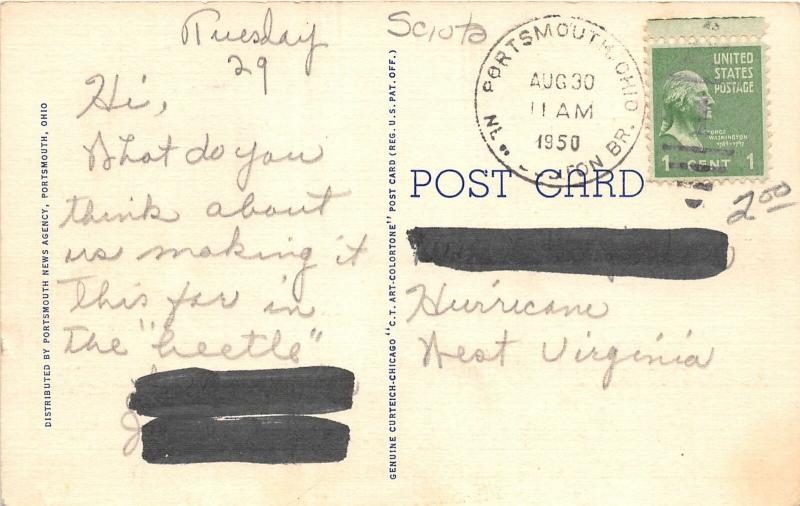 Tuesday
29
Hi,
What do you
think about
us making it
this far in
the "beetle"
Scioto
PORTSMOUTH, OHIO
AUG 30
11 AM
1950
UNITED
STATES
POSTAGE
GEORGE
WASHINGTON
1789-1797
1 CENT 1
POST CARD
2.00
Hurricane
West Virginia
DISTRIBUTED BY PORTSMOUTH NEWS AGENCY, PORTSMOUTH, OHIO
GENUINE CURTEICH-CHICAGO "C.T. ART-COLORTONE" POST CARD (REG. U.S. PAT. OFF.)